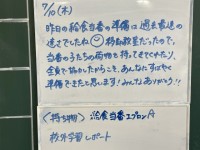 7/10(木)
昨日の給食当番の準備は過去最速の
速さでしたね 特別教室だったので、
当番のうちたちの荷物も持ってきてくれたり、
全員で協力したからこそ、あんなにすばやく
準備できたと思います!みんな、ありがとう!!
〈持ち物〉 給食当番エプロンA
校外学習レポート